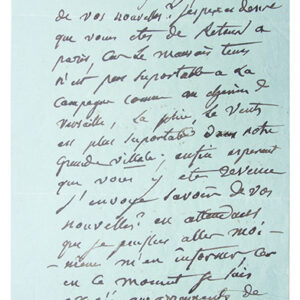 de vos nouvelles? j'espère
que vous etes de Retour a
paris, car Le mauvais tems
n'est pas suportable a La
Campagne comme au chemin de
Versaille, La pluie, Le Vents
est plus suportable dans notre
Grande ville. enfin esperant
que vous y etes devenue
j'envoye savoir de vos
nouvelles? en attendant
que je puisse aller moi-
même m'en informer Car
en ce moment je suis
de